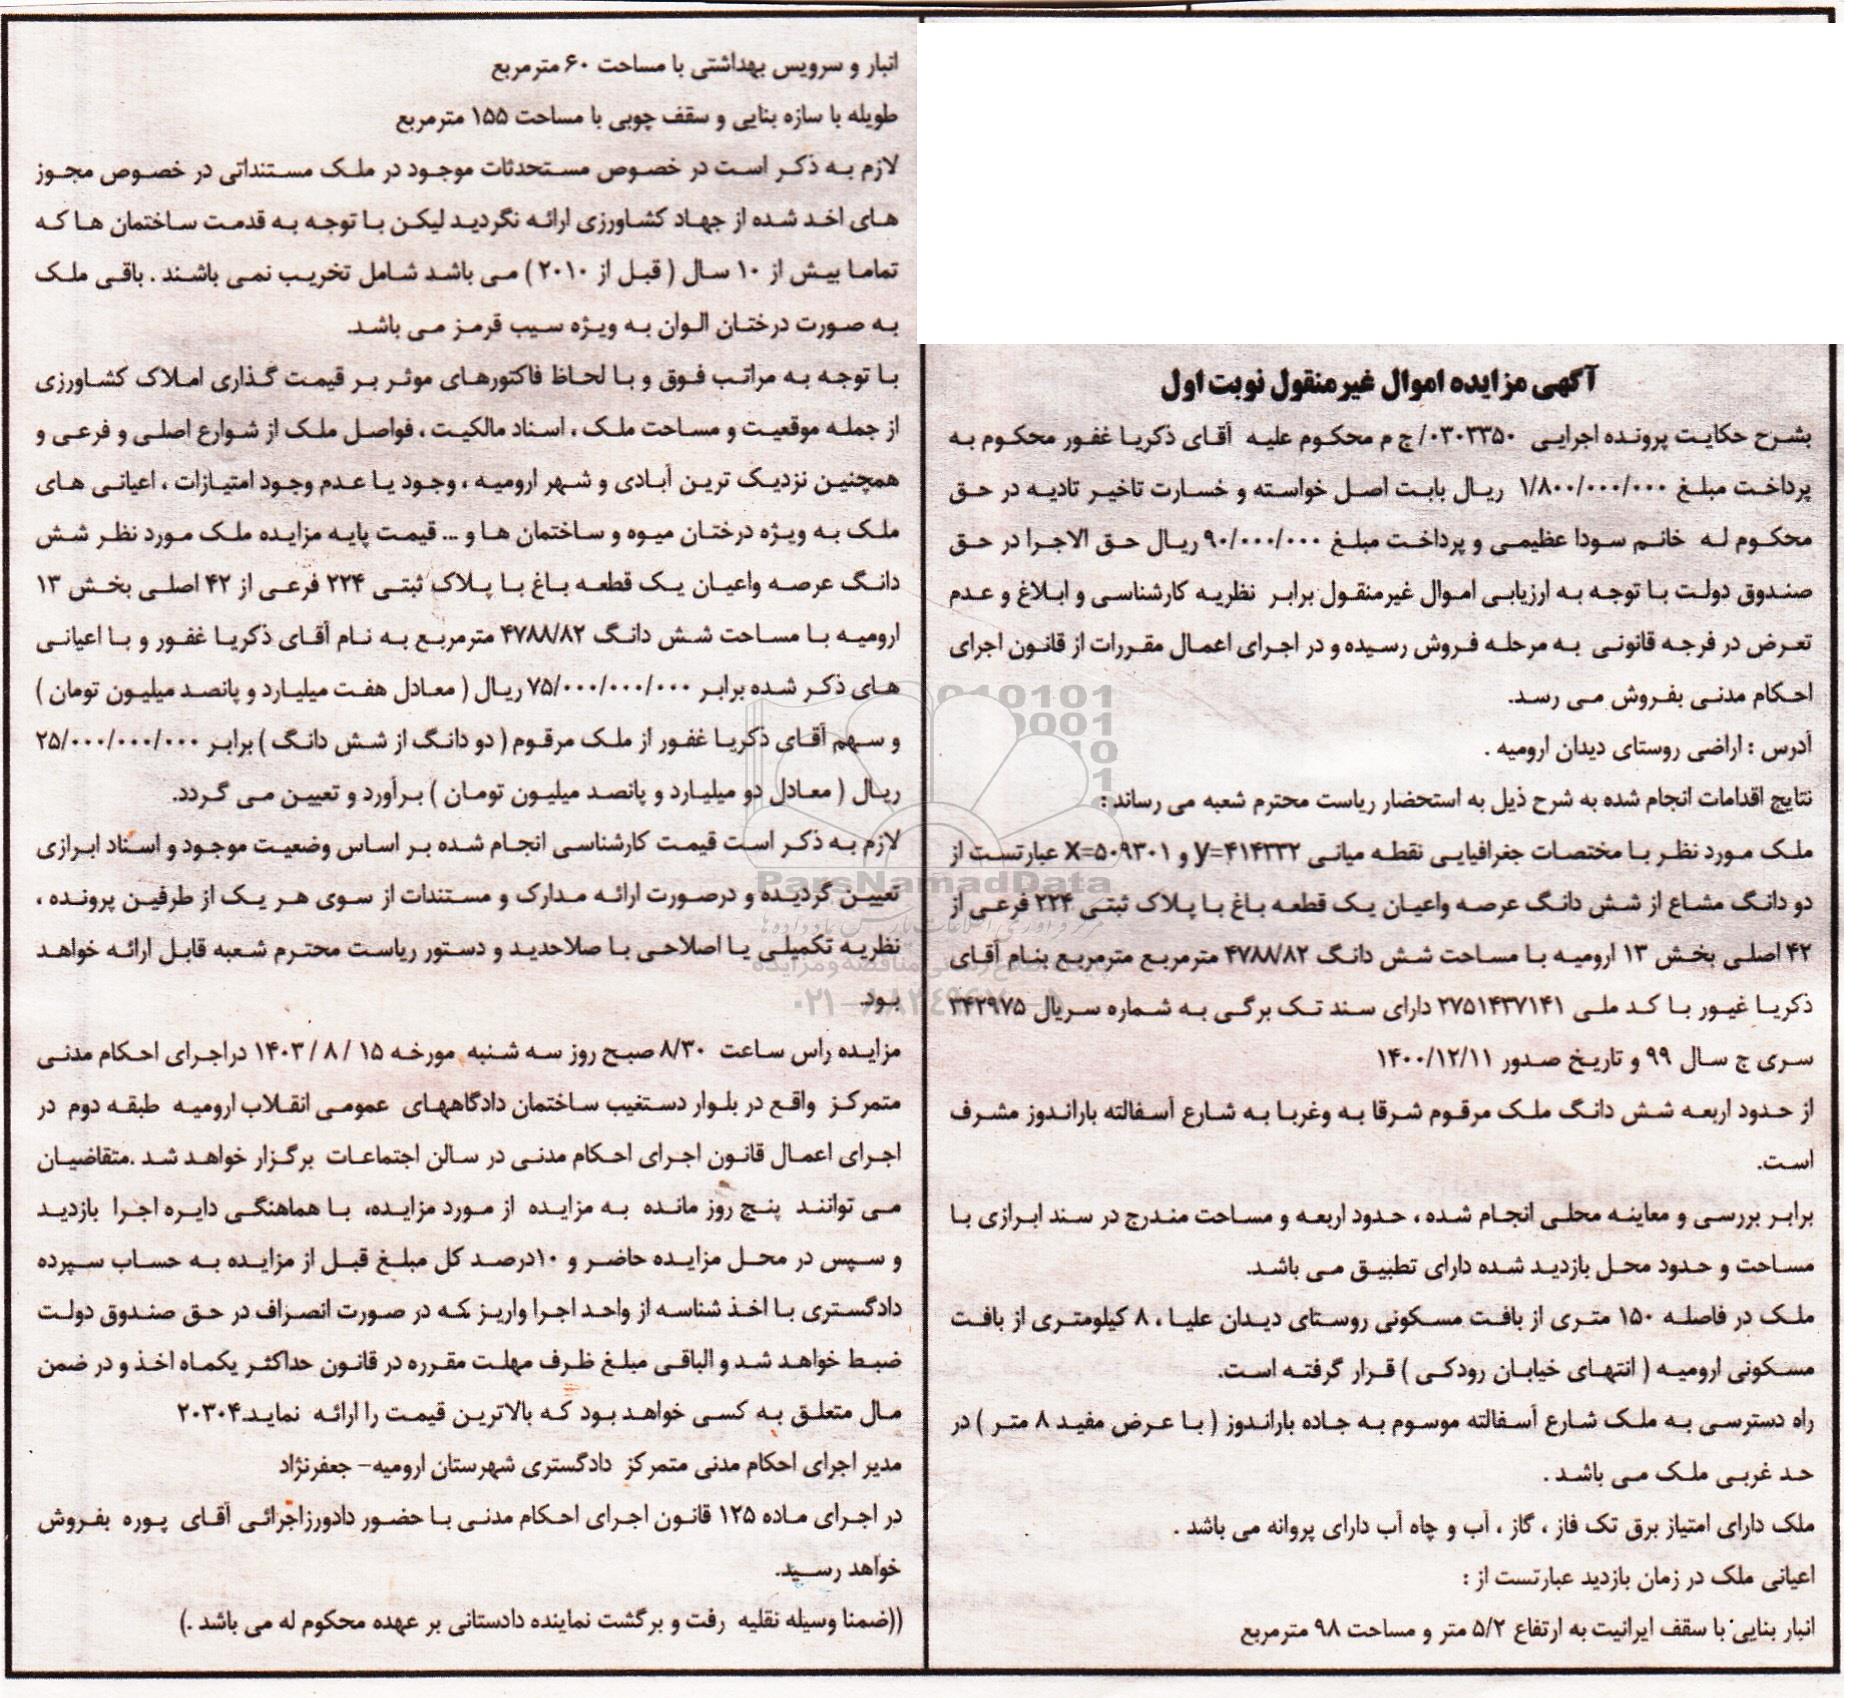 آگهی مزایده اموال غیرمنقول نوبت اول
بشرح حکایت پرونده اجرایی ۰۳۰۳۳۵۰/ ج م محکوم علیه آقای ذکریا غفور محکوم به
پرداخت مبلغ ۱/۸۰۰/۰۰۰/۰۰۰ ریال بابت اصل خواسته و خسارت تاخیر تادیه در حق
محکوم له خانم سودا عظیمی و پرداخت مبلغ ۹۰/۰۰۰/۰۰۰ ریال حق الاجرا در حق
صندوق دولت با توجه به ارزیابی اموال غیرمنقول برابر نظریه کارشناسی و ابلاغ و عدم
تعرض در فرجه قانونی به مرحله فروش رسیده و در اجرای اعمال مقررات از قانون اجرای
احکام مدنی بفروش می رسد.
آدرس : اراضی روستای دیدان ارومیه .
نتایج اقدامات انجام شده به شرح ذیل به استحضار ریاست محترم شعبه می رساند :
ملک مورد نظر با مختصات جغرافیایی نقطه میانی y=۴۱۴۳۳۲ و x=۵۰۹۳۰۱ عبارتست از
دو دانگ مشاع از شش دانگ عرصه واعیان یک قطعه باغ با پلاک ثبتی ۲۲۴ فرعی از
۴۲ اصلی بخش ۱۳ ارومیه با مساحت شش دانگ ۴۷۸۸/۸۲ مترمربع مترمربع بنام آقای
ذکریا غیور با کد ملی ۲۷۵۱۴۳۷۱۴۱ دارای سند تک برگی به شماره سریال ۳۴۲۹۷۵
سری ج سال ۹۹ و تاریخ صدور ۱۴۰۰/۱۲/۱۱
از حدود اربعه شش دانگ ملک مرقوم شرقا به وغربا به شارع آسفالته باراندوز مشرف
است.
برابر بررسی و معاینه محلی انجام شده ، حدود اربعه و مساحت مندرج در سند ابرازی با
مساحت و حدود محل بازدید شده دارای تطبیق می باشد.
ملک در فاصله ۱۵۰ متری از بافت مسکونی روستای دیدان علیا ، ۸ کیلومتری از بافت
مسکونی ارومیه ( انتهای خیابان رودکی ) قرار گرفته است.
راه دسترسی به ملک شارع آسفالته موسوم به جاده باراندوز ( با عرض مفید ۸ متر ) در
حد غربی ملک می باشد .
ملک دارای امتیاز برق تک فاز ، گاز ، آب و چاه آب دارای پروانه می باشد .
اعیانی ملک در زمان بازدید عبارتست از :
انبار بنایی با سقف ایرانیت به ارتفاع ۵/۲ متر و مساحت ۹۸ مترمربع
انبار و سرویس بهداشتی با مساحت ۶۰ مترمربع
طویله با سازه بنایی و سقف چوبی با مساحت ۱۵۵ مترمربع
لازم به ذکر است در خصوص مستحدثات موجود در ملک مستنداتی در خصوص مجوز
های اخد شده از جهاد کشاورزی ارائه نگردید لیکن با توجه به قدمت ساختمان ها که
تماما بیش از ۱۰ سال ( قبل از ۲۰۱۰ ) می باشد شامل تخریب نمی باشند . باقی ملک
به صورت درختان الوان به ویژه سیب قرمز می باشد.
با توجه به مراتب فوق و با لحاظ فاکتورهای موثر بر قیمت گذاری املاک کشاورزی
از جمله موقعیت و مساحت ملک ، اسناد مالکیت ، فواصل ملک از شوارع اصلی و فرعی و
همچنین نزدیک ترین آبادی و شهر ارومیه ، وجود یا عدم وجود امتیازات ، اعیانی های
ملک به ویژه درختان میوه و ساختمان ها و ... قیمت پایه مزایده ملک مورد نظر شش
دانگ عرصه واعیان یک قطعه باغ با پلاک ثبتی ۲۲۴ فرعی از ۴۲ اصلی بخش ۱۳
ارومیه با مساحت شش دانگ ۴۷۸۸/۸۲ مترمربع به نام آقای ذکریا غفور و با اعیانی
های ذکر شده برابر ۷۵/۰۰۰/۰۰۰/۰۰۰ ریال ( معادل هفت میلیارد و پانصد میلیون تومان )
و سهم آقای ذکریا غفور از ملک مرقوم ( دو دانگ از شش دانگ ) برابر ۲۵/۰۰۰/۰۰۰/۰۰۰
ریال ( معادل دو میلیارد و پانصد میلیون تومان ) برآورد و تعیین می گردد.
لازم به ذکر است قیمت کارشناسی انجام شده بر اساس وضعیت موجود و اسناد ابرازی
تعیین گردیده و درصورت ارائه مدارک و مستندات از سوی هر یک از طرفین پرونده ،
نظریه تکمیلی یا اصلاحی با صلاحدید و دستور ریاست محترم شعبه قابل ارائه خواهد
بود.
مزایده راس ساعت ۸/۳۰ صبح روز سه شنبه مورخه ۱۵ / ۸ / ۱۴۰۳ دراجرای احکام مدنی
متمرکز واقع در بلوار دستغیب ساختمان دادگاههای عمومی انقلاب ارومیه طبقه دوم در
اجرای اعمال قانون اجرای احکام مدنی در سالن اجتماعات برگزار خواهد شد .متقاضیان
می توانند پنج روز مانده به مزایده از مورد مزایده، با هماهنگی دایره اجرا بازدید
و سپس در محل مزایده حاضر و ۱۰درصد کل مبلغ قبل از مزایده به حساب سپرده
دادگستری با اخذ شناسه از واحد اجرا واریز که در صورت انصراف در حق صندوق دولت
ضبط خواهد شد و الباقی مبلغ ظرف مهلت مقرره در قانون حداکثر یکماه اخذ و در ضمن
مال متعلق به کسی خواهد بود که بالاترین قیمت را ارائه نماید.۲۰۳۰۴
مدیر اجرای احکام مدنی متمرکز دادگستری شهرستان ارومیه– جعفرنژاد
در اجرای ماده ۱۲۵ قانون اجرای احکام مدنی با حضور دادورزاجرائی آقای پوره بفروش
خواهد رسید.
((ضمنا وسیله نقلیه رفت و برگشت نماینده دادستانی بر عهده محکوم له می باشد .)
ParsNamadData